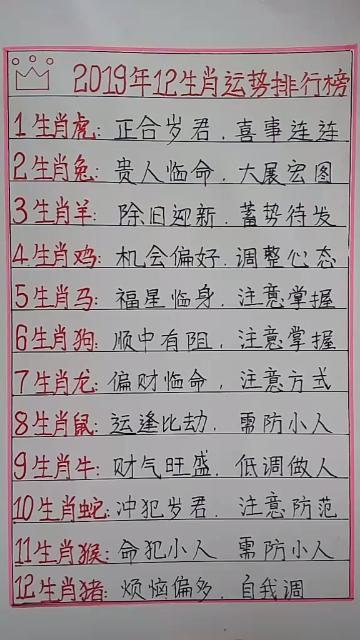 2019年12生肖运势排行榜
1生肖虎:正合岁君.喜事连连
2生肖兔:贵人临命.大展宏图
3生肖羊:除旧迎新.蓄势待发
4生肖鸡:机会偏好.调整心态
5生肖马:福星临身.注意掌握
6生肖狗:顺中有阻.注意掌握
7生肖龙:偏财临命,注意方式
8生肖鼠:运逢比劫.需防小人
9生肖牛:财气旺盛.低调做人
10生肖蛇:冲犯岁君.注意防范
11生肖猴:命犯小人 需防小人
12生肖猪:烦恼偏多.自我调